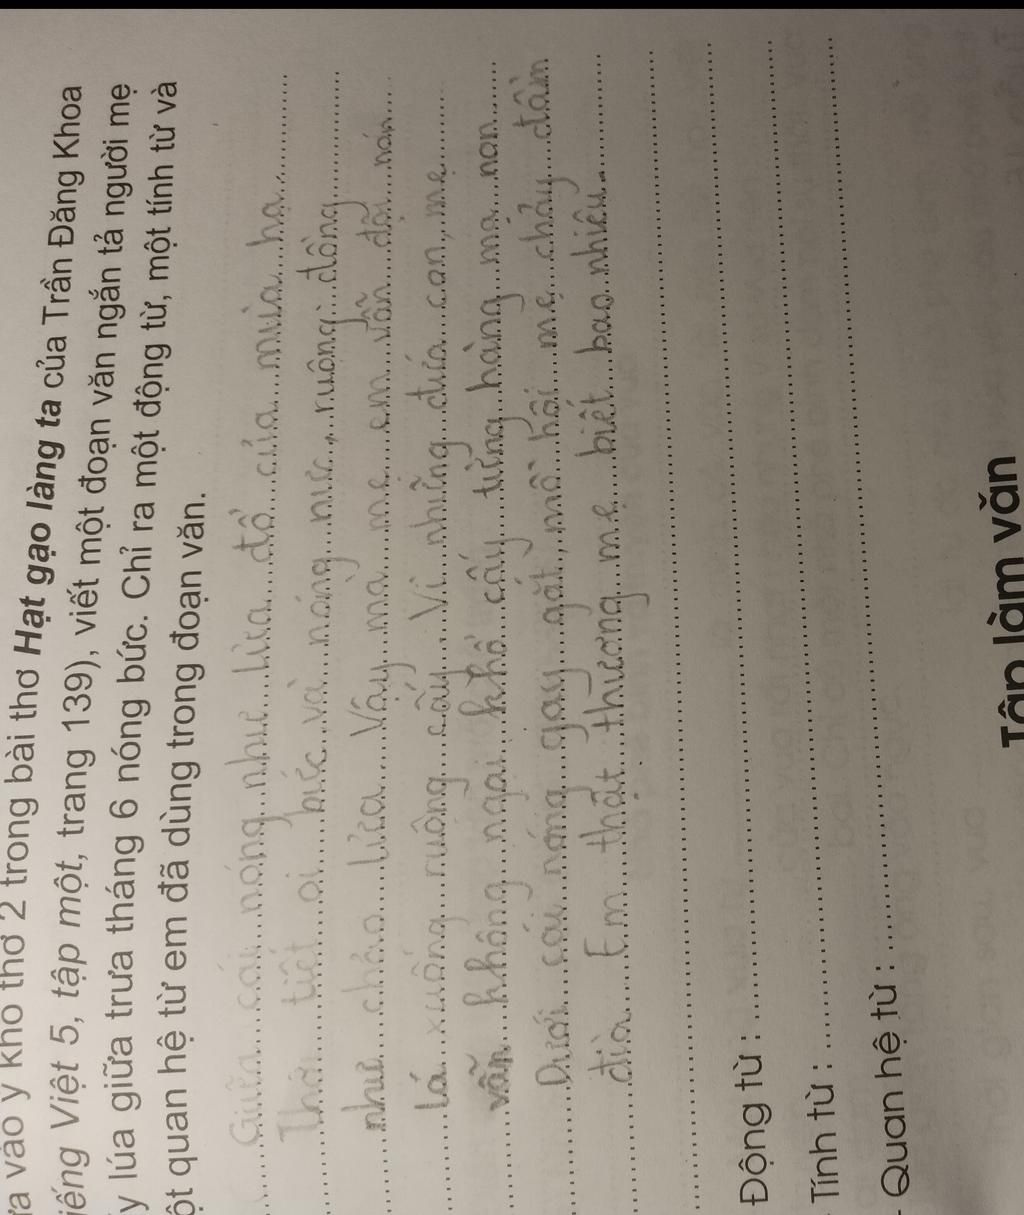 a vào ý khổ thơ 2 trong bài thơ Hạt gạo làng ta của Trần Đăng Khoa
iếng Việt 5, tập một, trang 139), viết một đoạn văn ngắn tả người mẹ
y lúa giữa trưa tháng 6 nóng bức. Chỉ ra một động từ, một tính từ và
ột quan hệ từ em đã dùng trong đoạn văn.
Giữa cái nóng như lửa đổ của mùa hạ.
Thời tiết oi bức và nóng nực, ruộng đồng
như chảo lửa. Vậy mà mẹ em vẫn đội nón
lá xuống ruộng cấy. Vì những đứa con, mẹ
vẫn không ngại khổ cấy từng hàng mạ non.
Dưới cái nóng gay gắt, mồ hôi mẹ chảy đầm
đìa. Em thật thương mẹ biết bao nhiêu.
Động từ :
- Tính từ :
- Quan hệ từ :
Tập làm văn